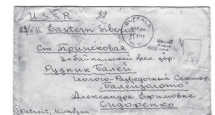 U.S.S.R. 99
Eastern Siberia
Ст. Приисковая
Забайкальской жел. дор.
Рудник Балей
Геолого-Разведочный Сектор
"Балейзолото"
Александра Кирилловне
Сидоренко
Detroit, Michigan